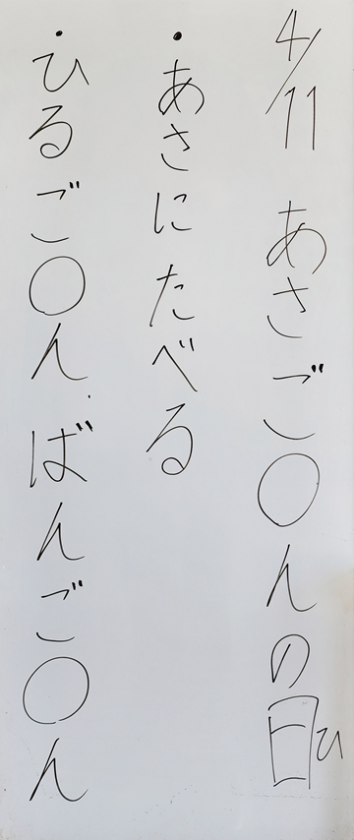 4/11 あさご〇んの日ひ
・あさに たべる
・ひるご〇ん、ばんご〇ん